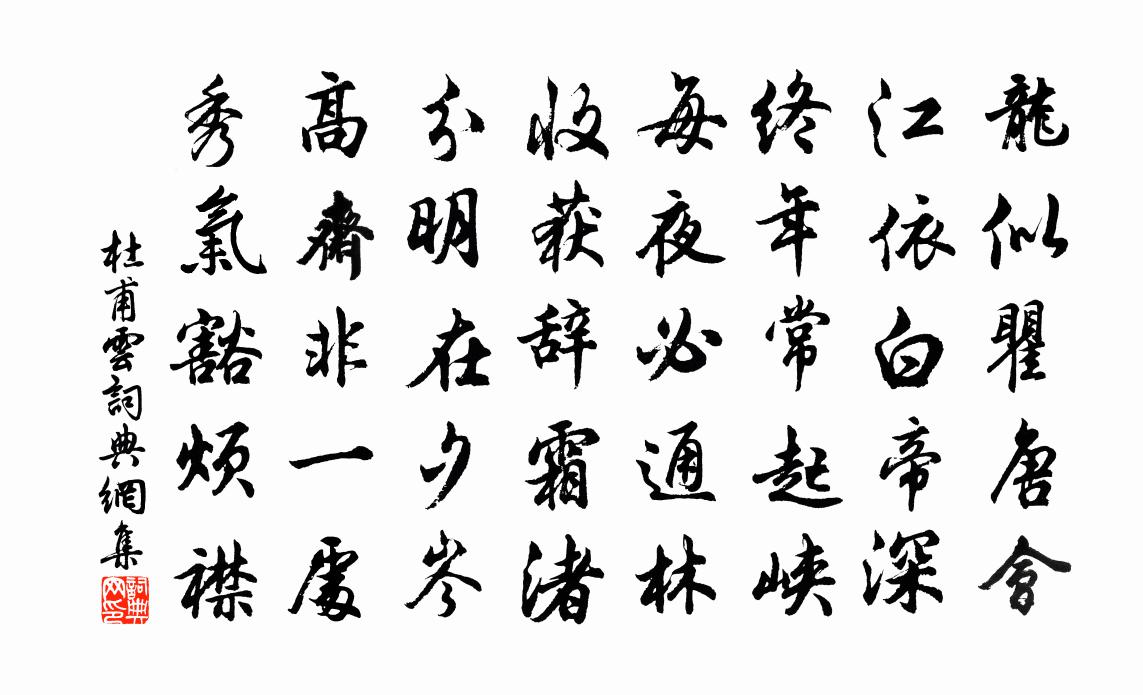 龍似瞿唐會
江依白帝深
终年常起峽
每夜必通林
收获辞霜渚
分明在夕岑
高齋非一處
秀氣豁煩襟
杜甫雲詞典網集
詞典
网印